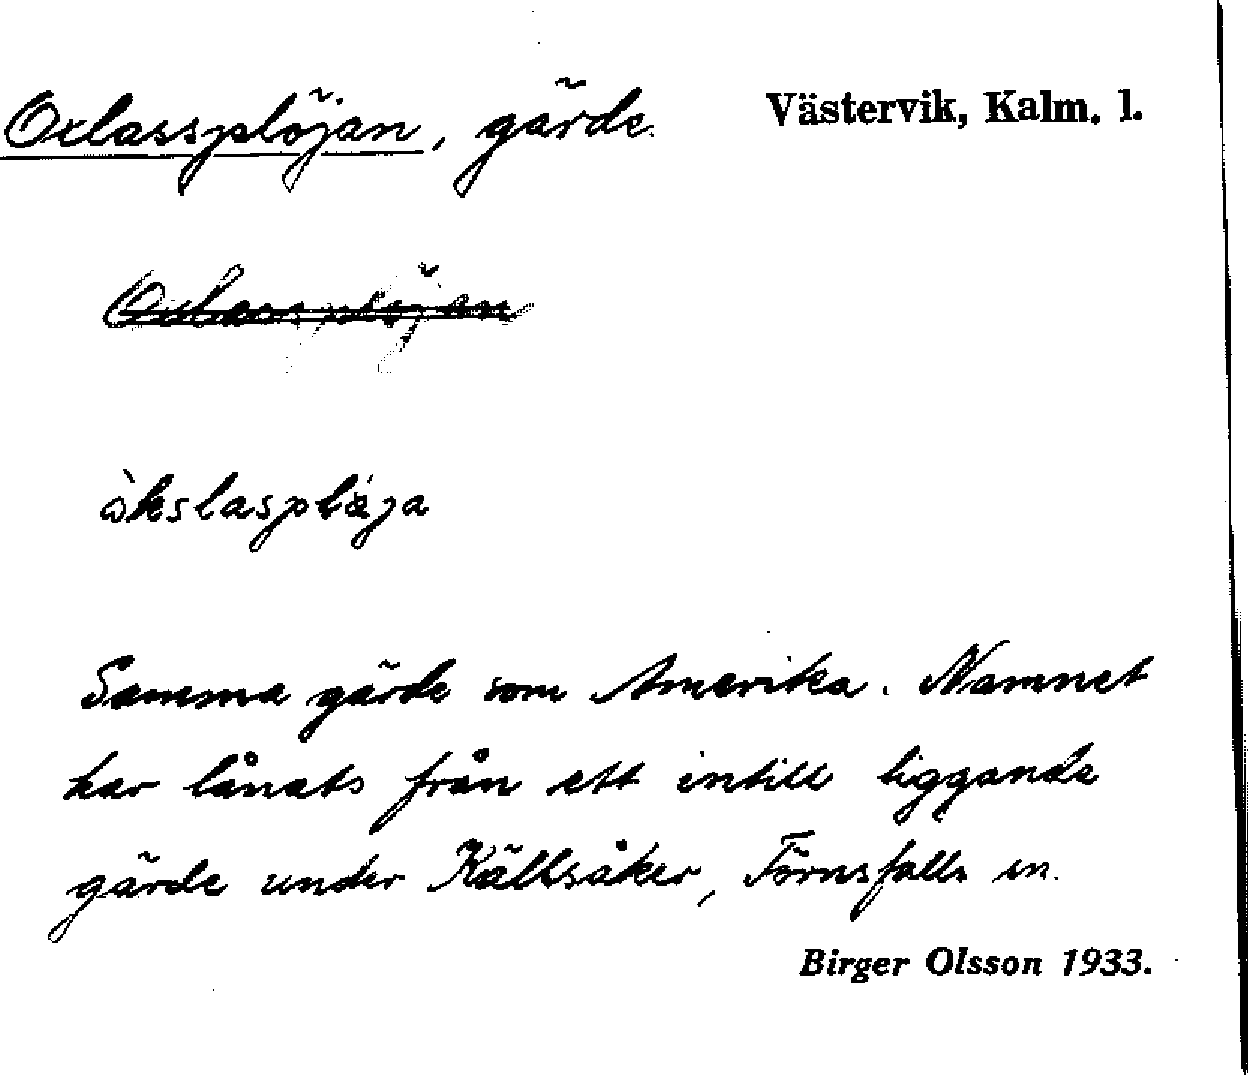 Oxlassplöjan, gärde. Västervik, Kalm. l.
Oxlassplöjan
ò̀kslasplája
Samma gärde som Amerika. Namnet
har lånats från ett intill liggande
gärde under Källsåker, Törnsfalls sn.
Birger Olsson 1933.